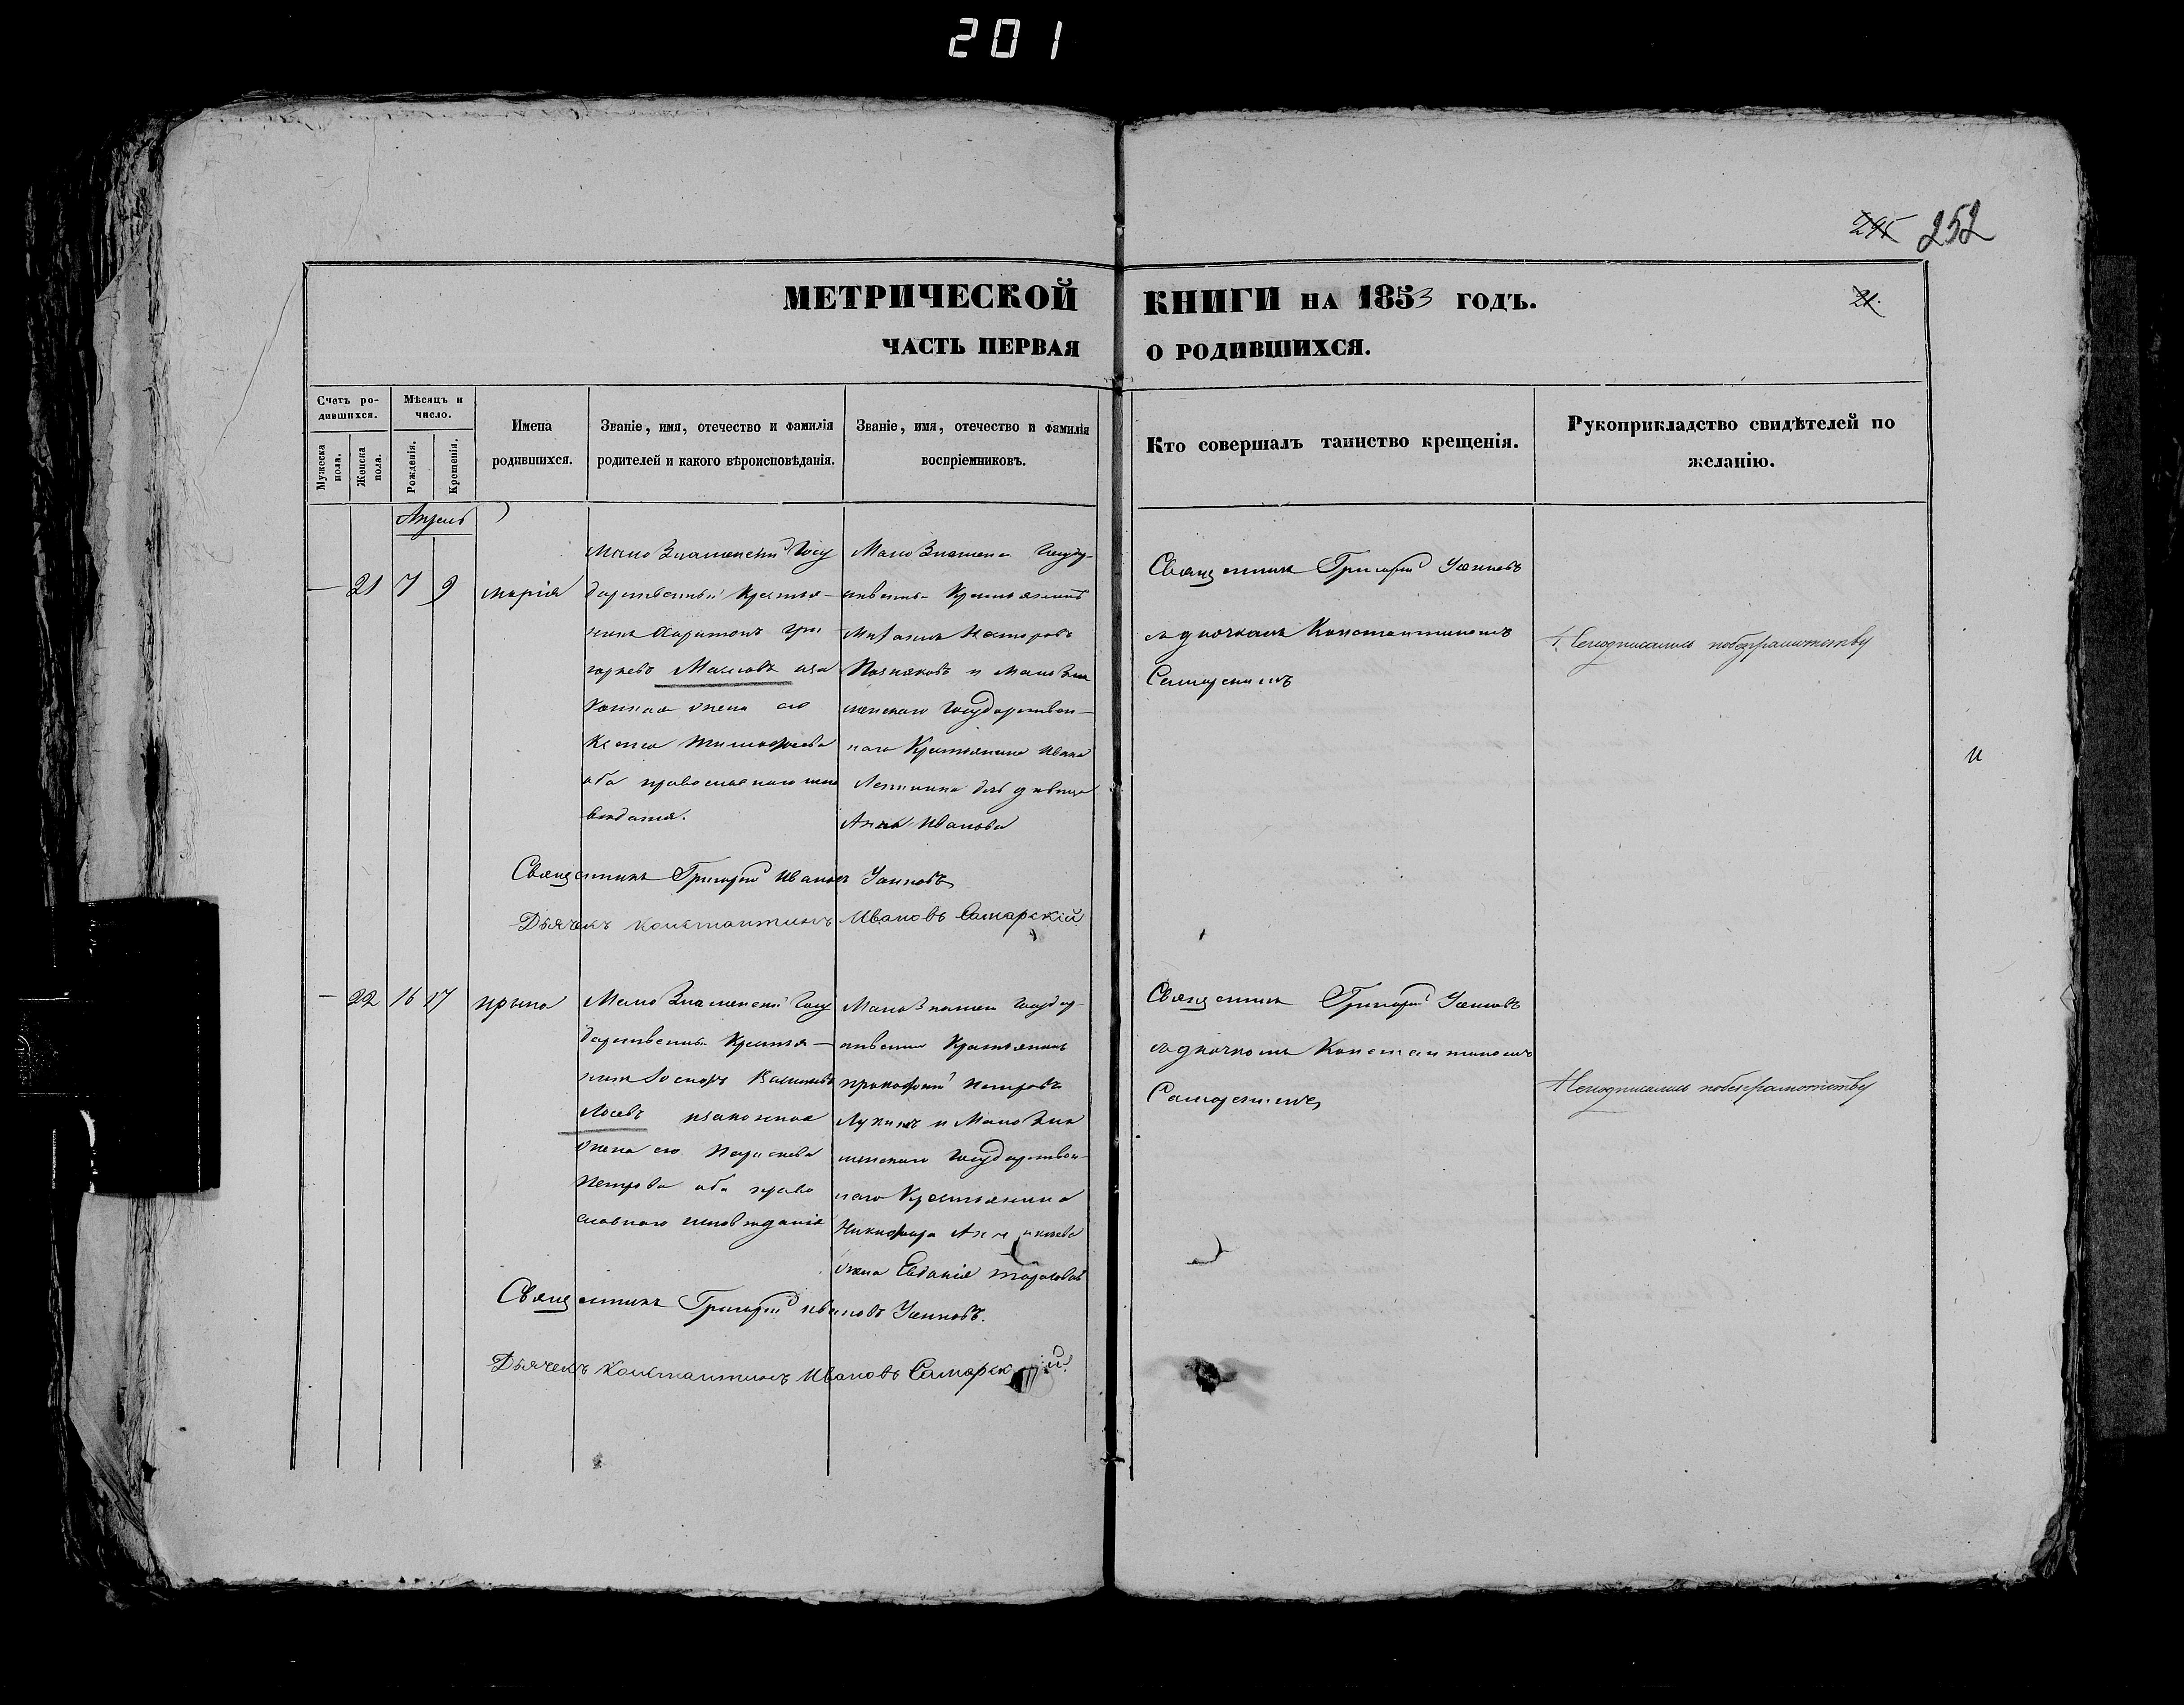 201
245 252
МЕТРИЧЕСКОЙ КНИГИ НА 1853 ГОДЪ.
21.
ЧАСТЬ ПЕРВАЯ О РОДИВШИХСЯ.
Счетъ ро-
дившихся.
Мужеска
пола.
Женска
пола.
Мѣсяцъ и
число.
Рожденія.
Крещенія.
Имена
родившихся.
Званіе, имя, отечество и фамилія
родителей и какого вѣроисповѣданія.
Званіе, имя, отечество и фамилія
воспріемниковъ.
Кто совершалъ таинство крещенія.
Рукоприкладство свидѣтелей по
желанію.
Апрель
— 21 7 9 Марія
Мало Знаменскій Госу
дарственный Крестья-
нинъ Харитонъ Гри
горьевъ
жена его
Ксенія Тимофеева
оба православнаго испо
веданія.
Мало Знамен Госудр-
ственный Крестьянинъ
Несторовъ
Позняковъ и Мало Зна
менскаго Государствен-
наго Крестьянина Ивана
дочь девица
Анна Иванова
Священникъ Григорій
съ дьячкомъ Константиномъ
Самарскимъ
Неподписались побезграмотству
и
Священникъ Григорій Ивановъ
Дьячекъ Константинъ Ивановъ Самарскій
— 22 16 17 Ирина
Мало Знаменскій Госу
дарственный Крестья-
нинъ
Лосевъ изаконная
жена его Параскева
Петрова оба право
славнаго исповеданія
Мало Знамен Государ-
ственный Крестьянинъ
Прокофій Петровъ
Лукинъ и Мало Зна
менскаго Государствен-
наго Крестьянина
Никифора
жена Тарасова
Священникъ Григорій
съ дьячкомъ Константиномъ
Самарскимъ
Неподписались побезграмотству
Священникъ Григорій Ивановъ
Дьячекъ Константинъ Ивановъ Самарскій.